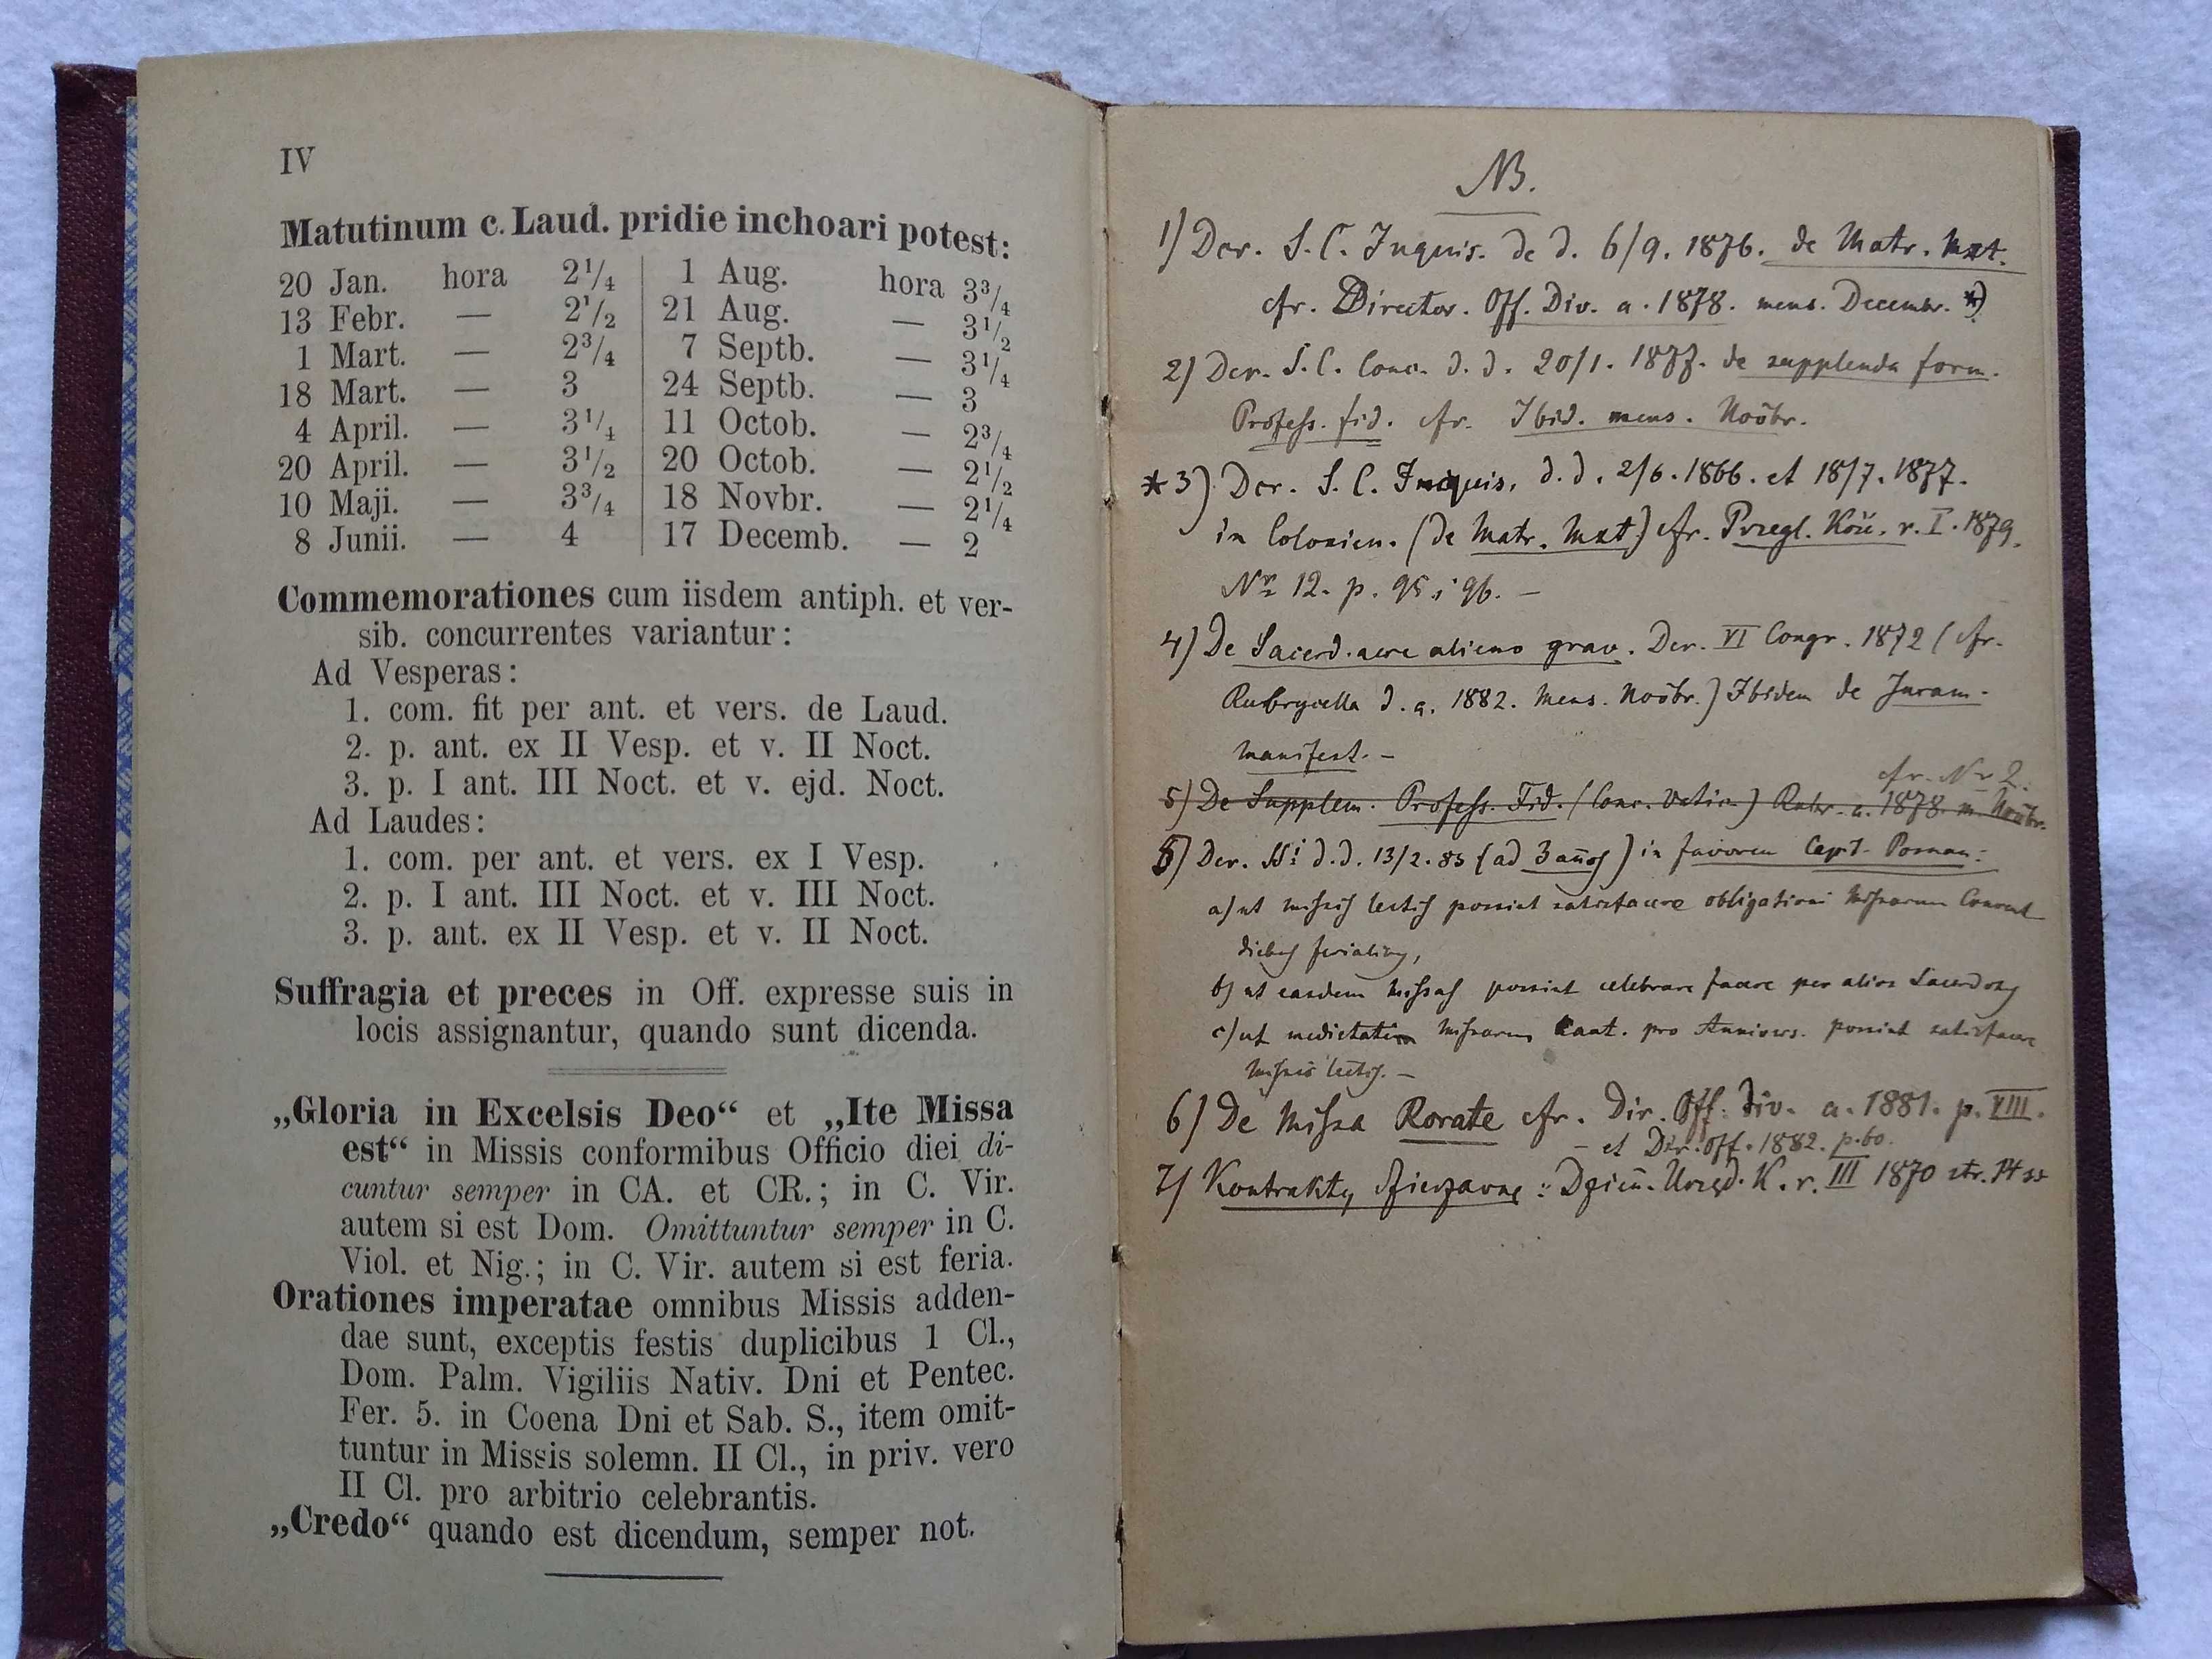 IV
Matutinum c. Laud. pridie inchoari potest:
20 Jan. hora 2¹/₄ | 1 Aug. hora 3³/₄
13 Febr. — 2¹/₂ | 21 Aug. — 3¹/₂
1 Mart. — 2³/₄ | 7 Septb. — 3¹/₄
18 Mart. — 3 | 24 Septb. — 3
4 April. — 3¹/₄ | 11 Octob. — 2³/₄
20 April. — 3¹/₂ | 20 Octob. — 2¹/₂
10 Maji. — 3³/₄ | 18 Novbr. — 2¹/₄
8 Junii. — 4 | 17 Decemb. — 2
Commemorationes cum iisdem antiph. et ver-
sib. concurrentes variantur:
Ad Vesperas:
1. com. fit per ant. et vers. de Laud.
2. p. ant. ex II Vesp. et v. II Noct.
3. p. I ant. III Noct. et v. ejd. Noct.
Ad Laudes:
1. com. per ant. et vers. ex I Vesp.
2. p. I ant. III Noct. et v. III Noct.
3. p. ant. ex II Vesp. et v. II Noct.
Suffragia et preces in Off. expresse suis in
locis assignantur, quando sunt dicenda.
„Gloria in Excelsis Deo“ et „Ite Missa
est“ in Missis conformibus Officio diei di-
cuntur semper in CA. et CR.; in C. Vir.
autem si est Dom. Omittuntur semper in C.
Viol. et Nig.; in C. Vir. autem si est feria.
Orationes imperatae omnibus Missis adden-
dae sunt, exceptis festis duplicibus 1 Cl.,
Dom. Palm. Vigiliis Nativ. Dni et Pentec.
Fer. 5. in Coena Dni et Sab. S., item omit-
tuntur in Missis solemn. II Cl., in priv. vero
II Cl. pro arbitrio celebrantis.
„Credo“ quando est dicendum, semper not.
NB.
1) Dcr. S. C. Inquis. de d. 6/9. 1876. de Matr. mxt.
cfr. Director. Off. Div. a. 1878. mens. Decembr. *)
2) Dcr. S. C. Conc. d. d. 20/1. 1877. de supplenda form.
Profess. fid. cfr. Ibid. mens. Novbr.
* 3) Dcr. S. C. Inquis. d. d. 2/6. 1866. et 18/7. 1877.
in Colonien. (de Matr. mxt) cfr. Przegl. Kośc. r. I. 1879.
Nr 12. p. 95 i 96. —
4) De Sacerd. aere alieno grav. Dcr. VI Congr. 1872 (cfr.
Rubrycella d. a. 1882. mens. Novbr.) Ibidem de Juram.
manifest. —
cfr. Nr 2.
5) De Supplem. Profess. Fid. (Conc. Vatic.) Rubr. a. 1878. m. Novbr.
5) Dcr. SSi d. d. 13/2. 83 (ad 3 años) in favorem Capit. Posnan:
a) ut missis lectis possint satisfacere obligationi missarum Convent
diebus ferialibus,
b) ut easdem missas possint celebrare facere per alios Sacerdotes
c) ut medietatem missarum cant. pro Annivers. possint satisfacere
missis lectis. —
6) De missa Rorate cfr. Dir. Off. Div. a. 1881. p. VIII.
— et Dir. Off. 1882. p. 60.
7) Kontrakty dzierżawne: Dzien. Urzęd. K. r. III 1870 str. 14